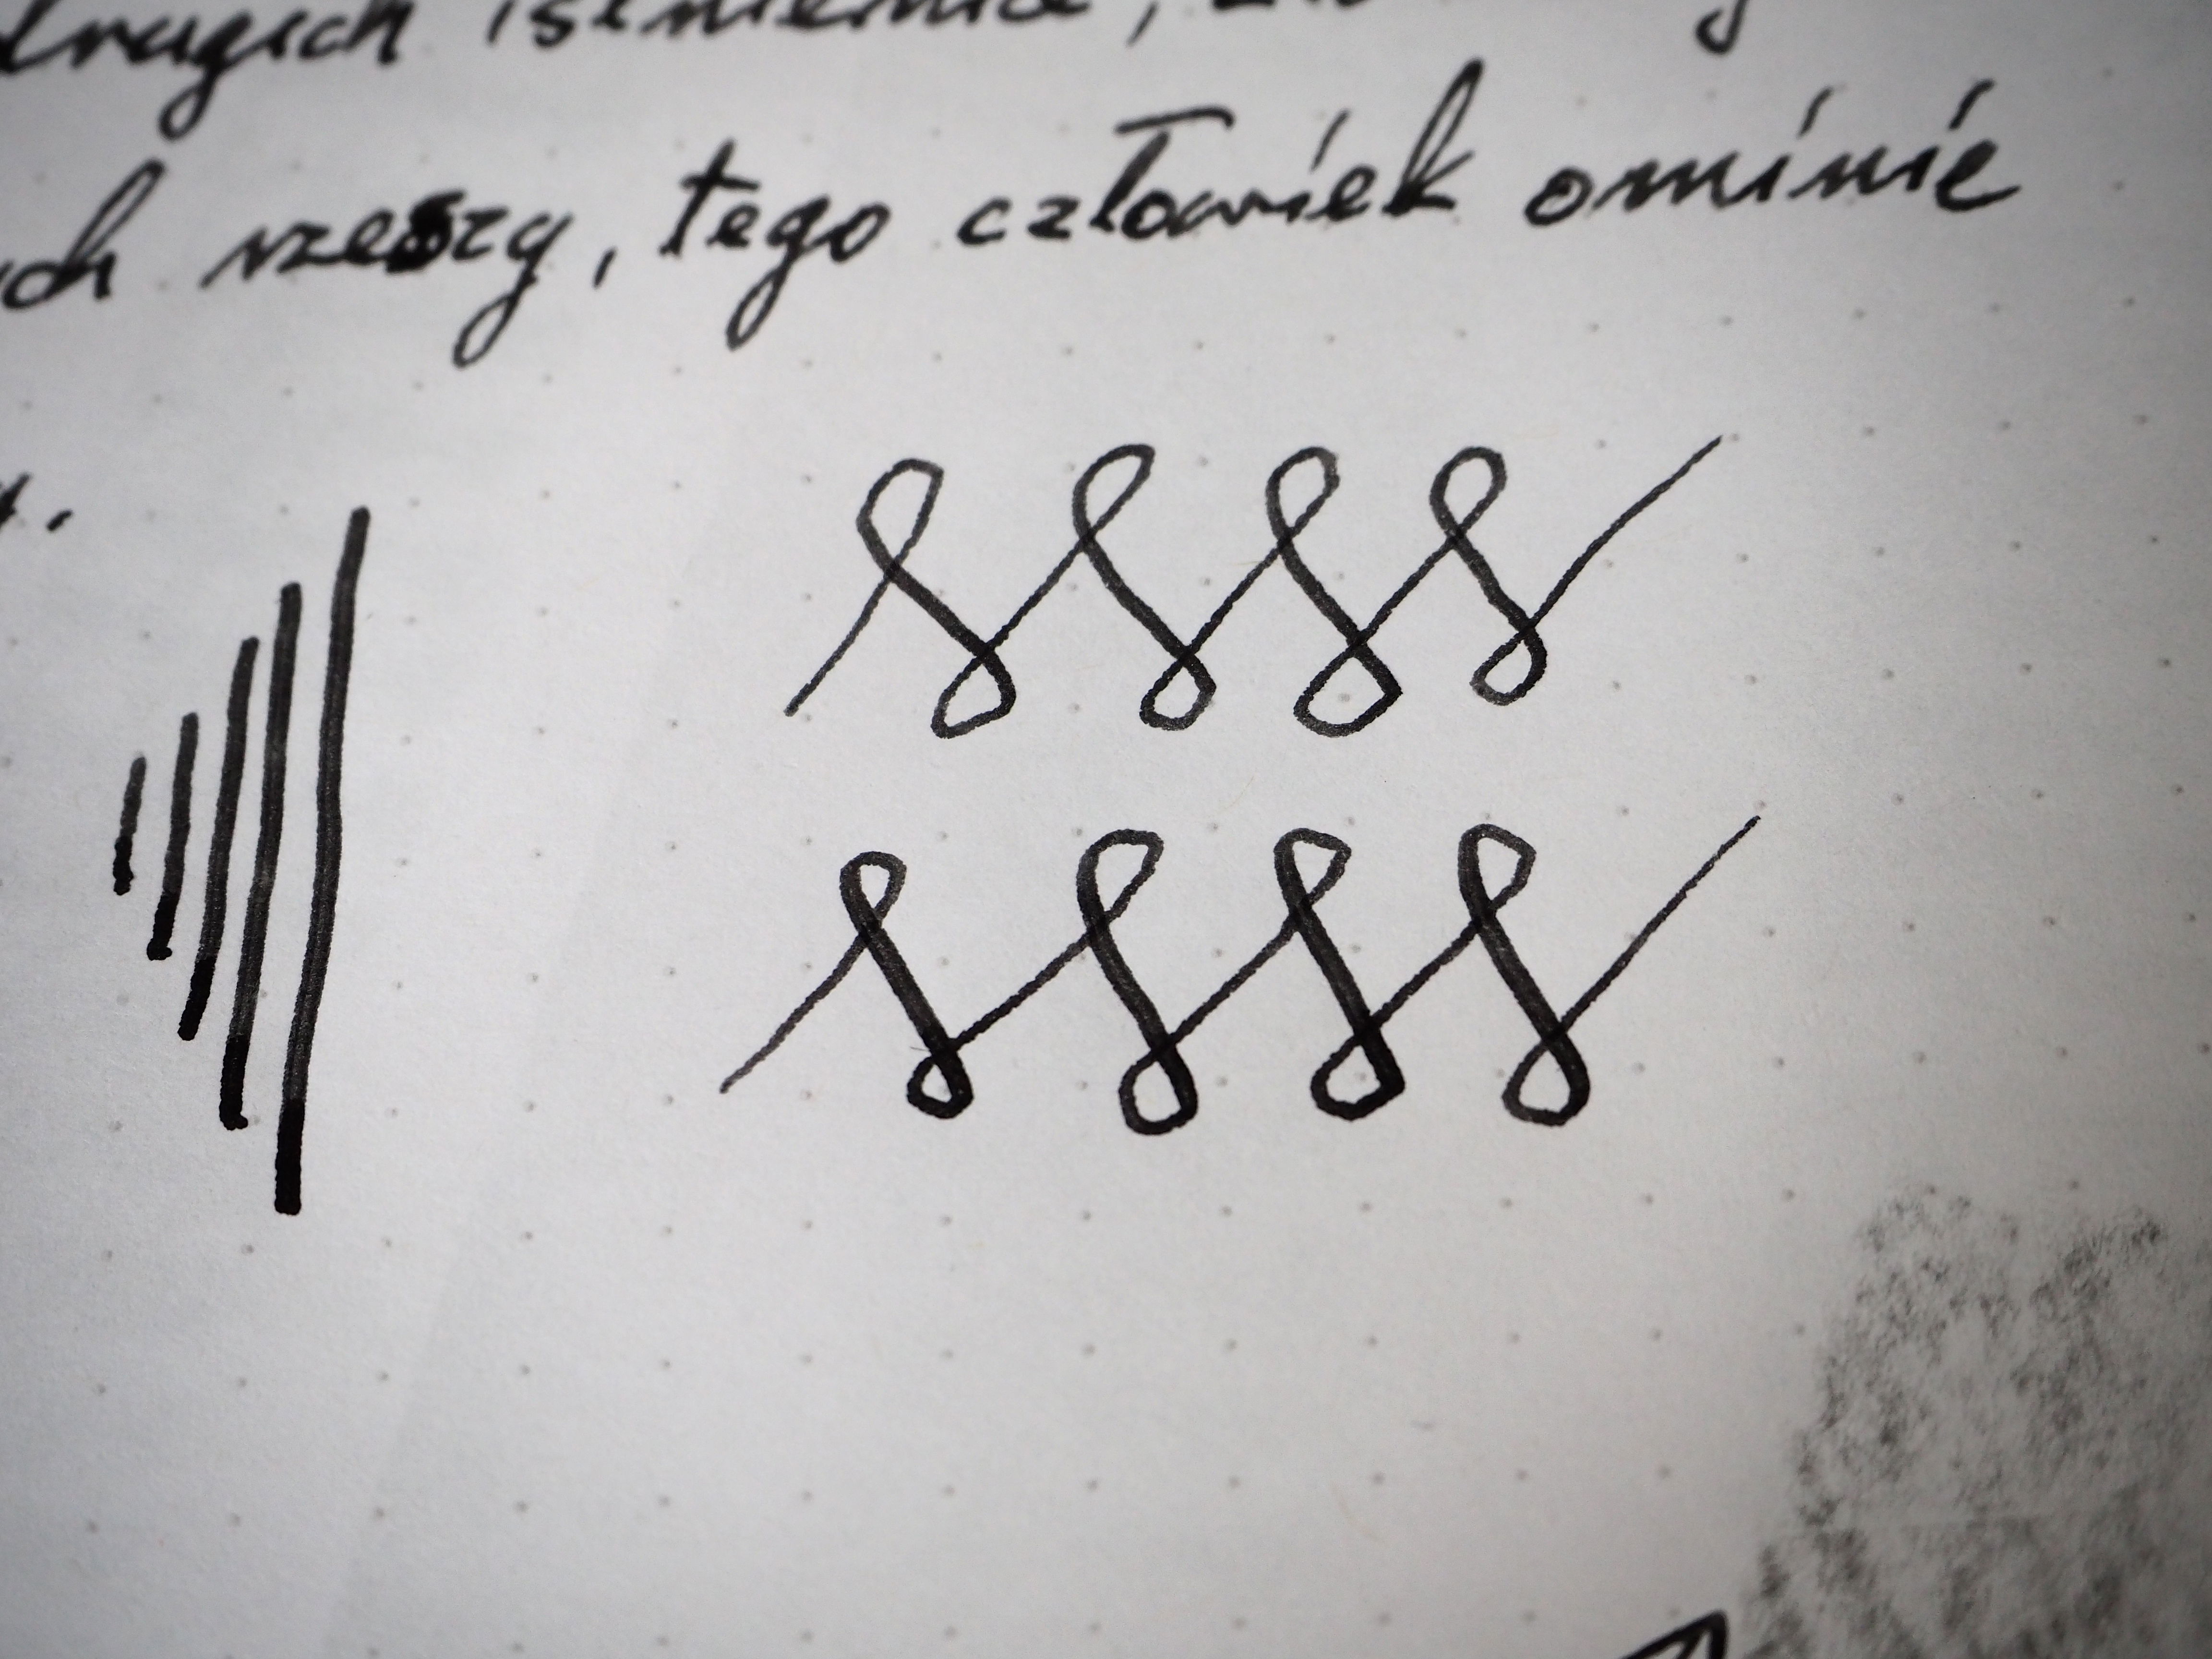 drugich istnienia,
ch rzeszy, tego człowiek ominie